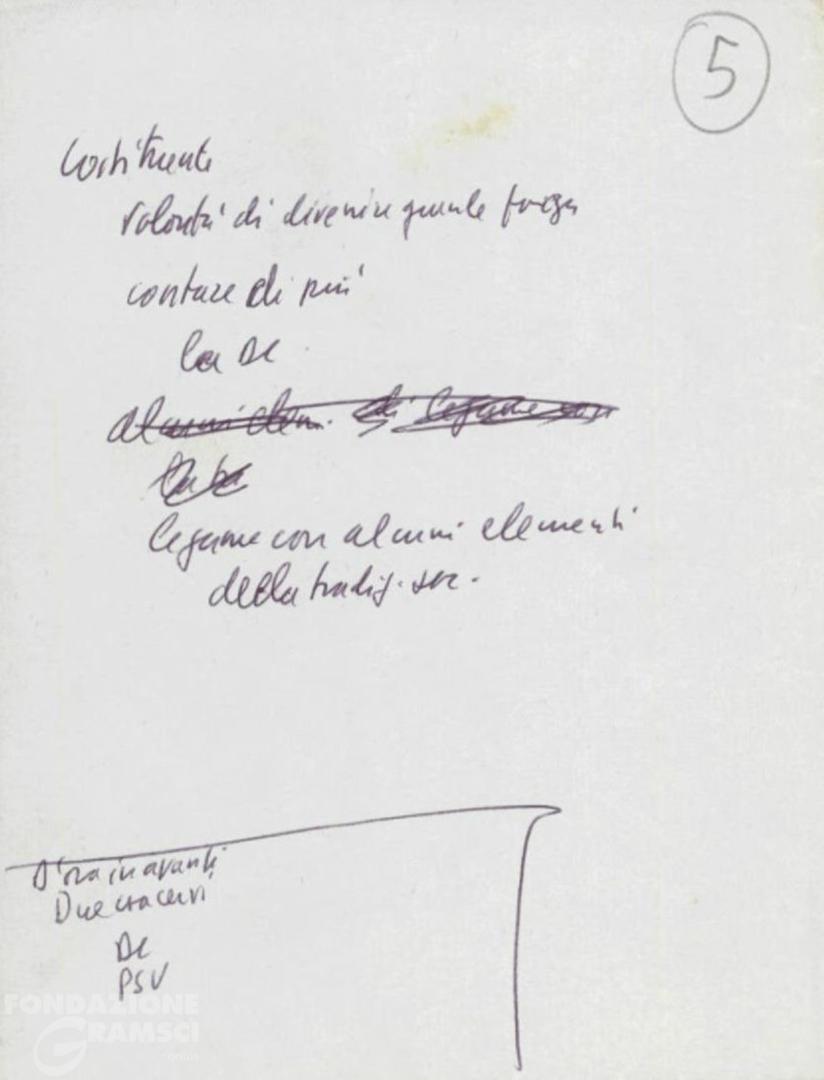 5
Costituente
volontà di divenire grande forza
contare di più
la DC
alcuni elem. di legame con
legame con alcuni elementi
della tradiz. soc.
D'ora in avanti
Due crociervi
DC
PSU
FONDAZIONE
GRAMSCI
onlus